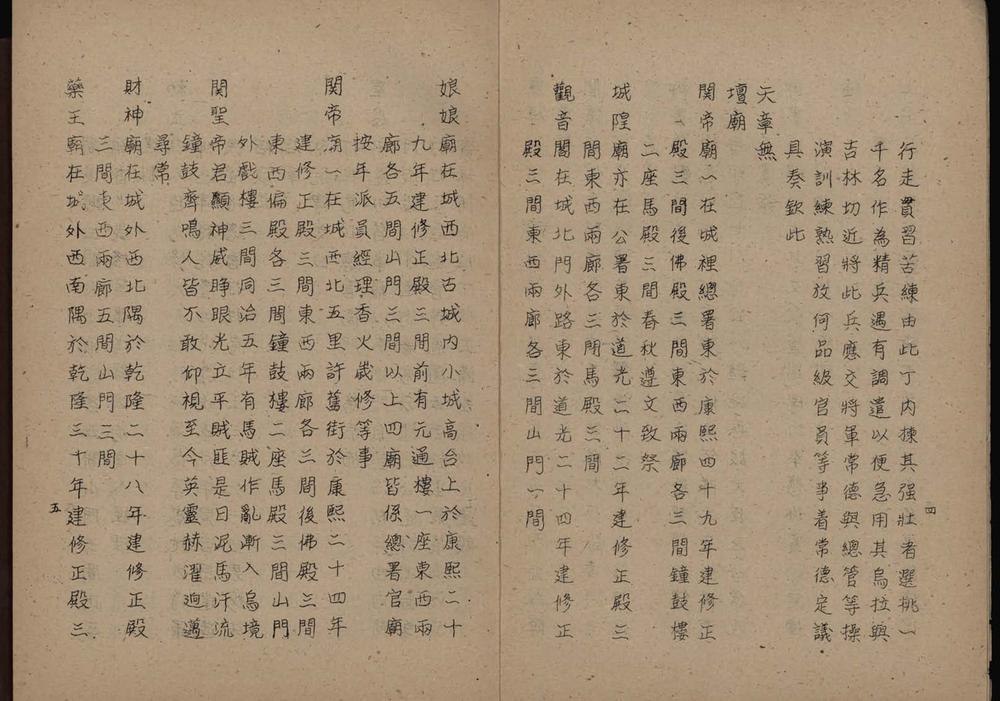 行走貫習苦練由此丁内揀其强壯者選挑一
千名作為精兵遇有調遣以便急用其烏拉與
吉林切近將此兵應交將軍常德與總管等操
演訓練熟習放何品級官員等事着常德定議
具奏欽此
天章無
壇廟
関帝廟一在城裡總署東於康熙四十九年建修正
殿三間後佛殿三間東西兩廊各三間鐘鼓樓
二座馬殿三間春秋遵文致祭
城隍廟亦在公署東於道光二十二年建修正殿三
間東西兩廊各三間馬殿三間
觀音閣在城北門外路東於道光二十四年建修正
殿三間東西兩廊各三間山門一間
四
娘娘廟在城西北古城内小城高台上於康熙二十
九年建修正殿三間前有元通樓一座東西兩
廊各五間山門三間以上四廟皆係總署官廟
按年派員經理香火歲修等事
関帝廟一在城西北五里許舊街於康熙二十四年
建修正殿三間東西兩廊各三間後佛殿三間
東西偏殿各三間鐘鼓樓二座馬殿三間山門
外戲樓三間同治五年有馬賊作亂漸入烏境
関聖帝君顯神威睜眼光立平賊匪是日泥馬汗流
鐘鼓齊鳴人皆不敢仰視至今英靈赫濯迥邁
尋常
財神廟在城外西北隅於乾隆二十八年建修正殿
三間東西兩廊五間山門三間
藥王廟在城外西南隅於乾隆三十年建修正殿三
五